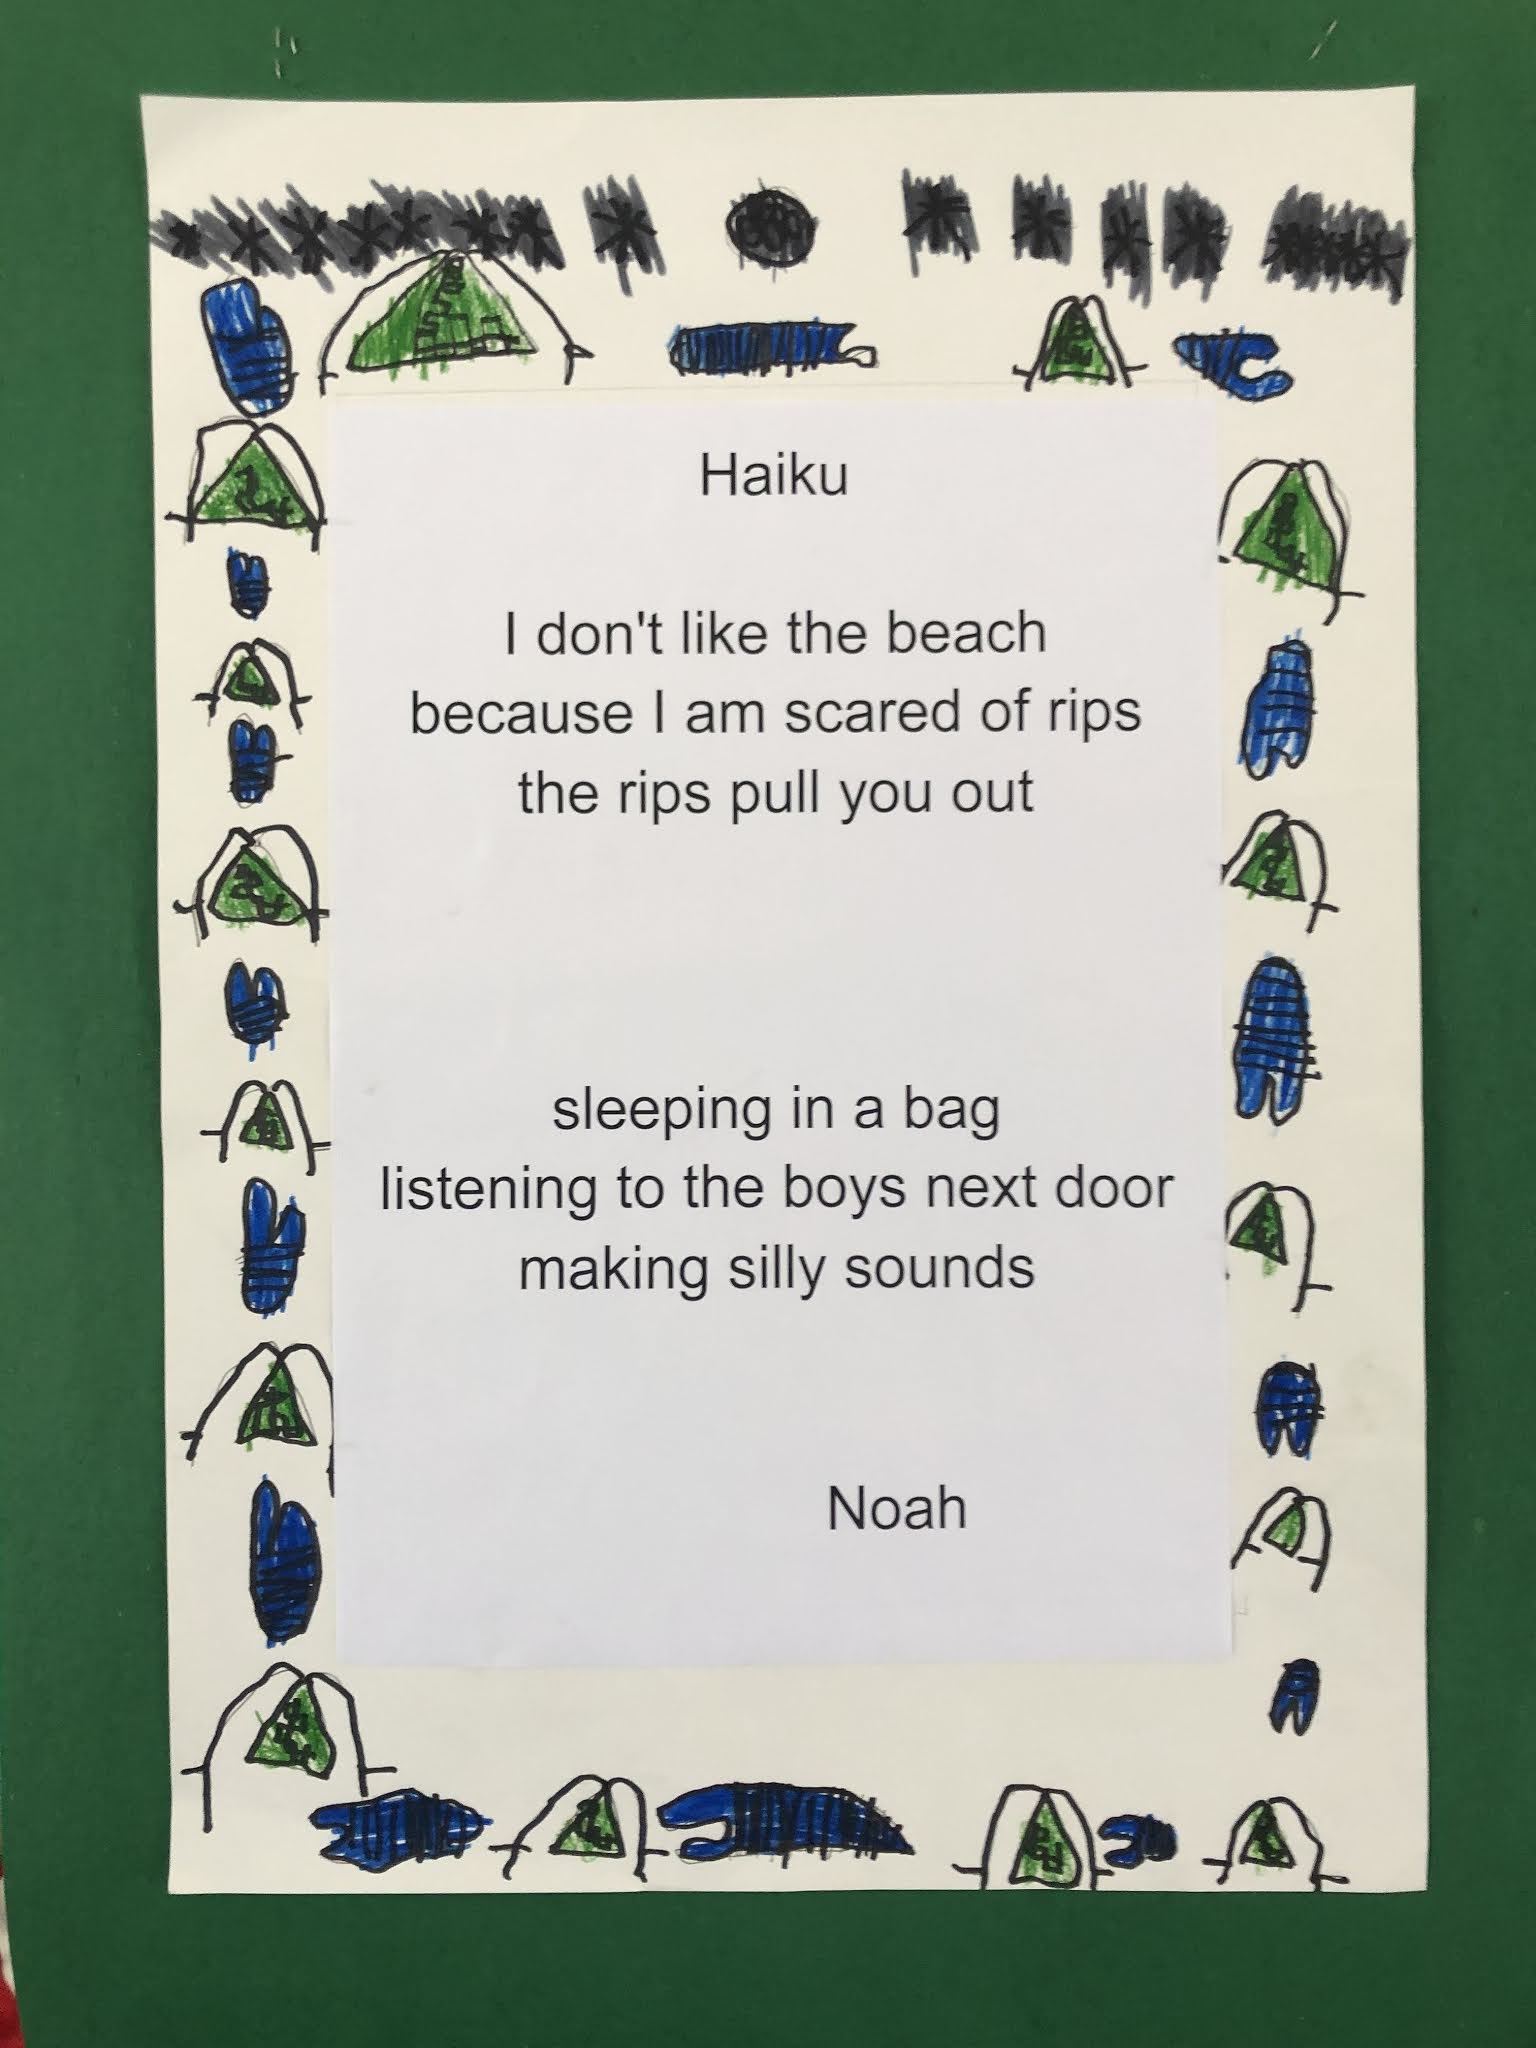 Haiku
I don't like the beach
because I am scared of rips
the rips pull you out
sleeping in a bag
listening to the boys next door
making silly sounds
Noah